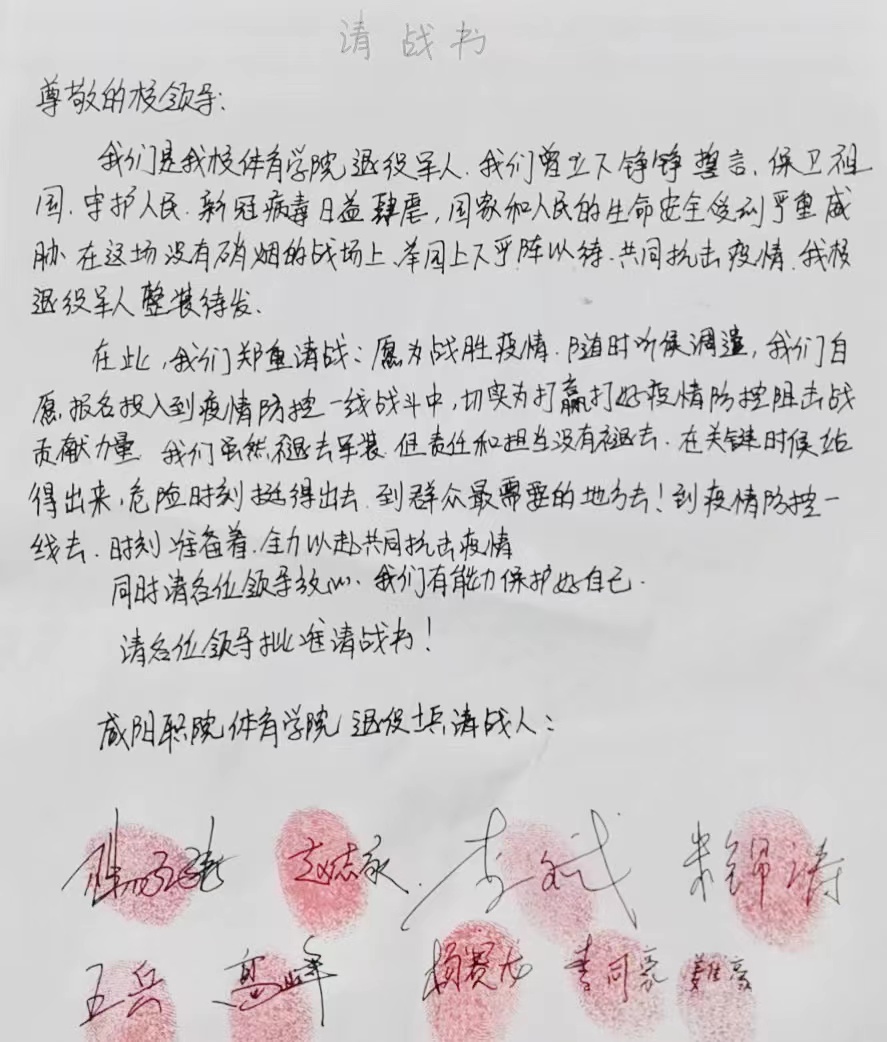 请战书
尊敬的校领导:
我们是我校体育学院退役军人.我们曾立下铮铮誓言,保卫祖
国.守护人民.新冠病毒日益肆虐,国家和人民的生命安全受到严重威
胁.在这场没有硝烟的战场上.举国上下严阵以待.共同抗击疫情.我校
退役军人整装待发.
在此,我们郑重请战:愿为战胜疫情.随时听候调遣,我们自
愿报名投入到疫情防控一线战斗中,切实为打赢打好疫情防控阻击战
贡献力量 我们虽然褪去军装.但责任和担当没有褪去.在关键时候站
得出来,危险时刻挺得出去.到群众最需要的地方去!到疫情防控一
线去.时刻准备着.全力以赴共同抗击疫情
同时请各位领导放心.我们有能力保护好自己.
请各位领导批准请战书!
咸阳职院体育学院退役士兵请战人:
赵志家 李斌 朱锦涛
王兵 高峰 杨赛龙 李同豪 姜豪